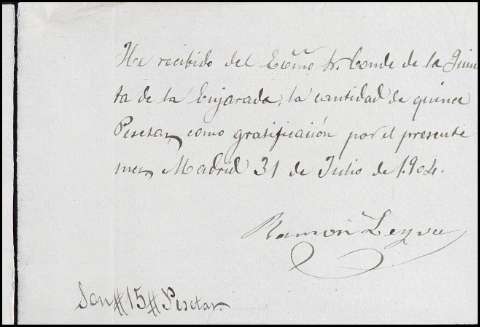 He recibido del Exc̃mo Sr. Conde de la Quin
ta de la Enjarada, la cantidad de quince
Pesetas, como gratificación por el presente
mes. Madrid 31 de Julio de 1.904.
Ramón Leyva
Son #15# Pesetas.